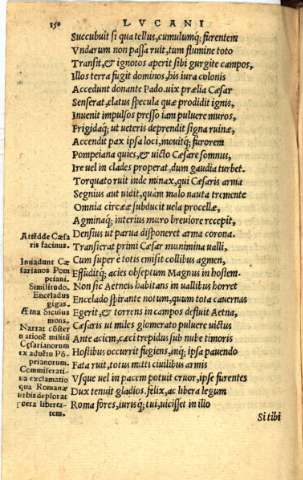 150 LVCANI
Succubuit si qua tellus, cumulumq; furentem
Vndarum non passa ruit, tum flumine toto
Transit, & ignotos aperit sibi gurgite campos,
Illos terra fugit dominos, his iura colonis
Accedunt donante Pado. uix prælia Cæsar
Senserat, elatus specula quæ prodidit ignis,
Inuenit impulsos presso iam puluere muros,
Frigidaq; ut ueteris deprendit signa ruinæ,
Accendit pax ipsa loci, mouitq; furorem
Pompeiana quies, & uicto Cæsare somnus,
Ire uel in clades properat, dum gaudia turbet.
Torquato ruit inde minax, qui Cæsaris arma
Segnius aut uidit, quàm malo nauta tremente
Omnia circææ subducit uela procellæ,
Agminaq; interius muro breuiore recepit,
Densius ut parua disponeret arma corona.
Transierat primi Cæsar munimina ualli,
Cum super è totis emisit collibus agmen,
Effuditq; acies obseptum Magnus in hostem.
Non sic Aetneis habitans in uallibus horret
Encelado spirante notum, quum tota cauernas
Egerit, & torrens in campos defluit Aetna,
Cæsaris ut miles glomerato puluere uictus
Ante aciem, cæci trepidus sub nube timoris
Hostibus occurrit fugiens, inq; ipsa pauendo
Fata ruit. totus mitti ciuilibus armis
Vsque uel in pacem potuit cruor, ipse furentes
Dux tenuit gladios. felix, ac libera legum
Roma fores, iurisq; tui, uicisset in illo
Si tibi
Cæsa
ris facinus.
Inuadunt Cæ
sarianos Pom
peiani.
Similitudo.
Enceladus
gigas.
Ætna
mons.
Narrat
Cæsarianorum
Pō
peianorum.
exclamatio
qua Romanæ
urbis deplorat
liberta
tem.